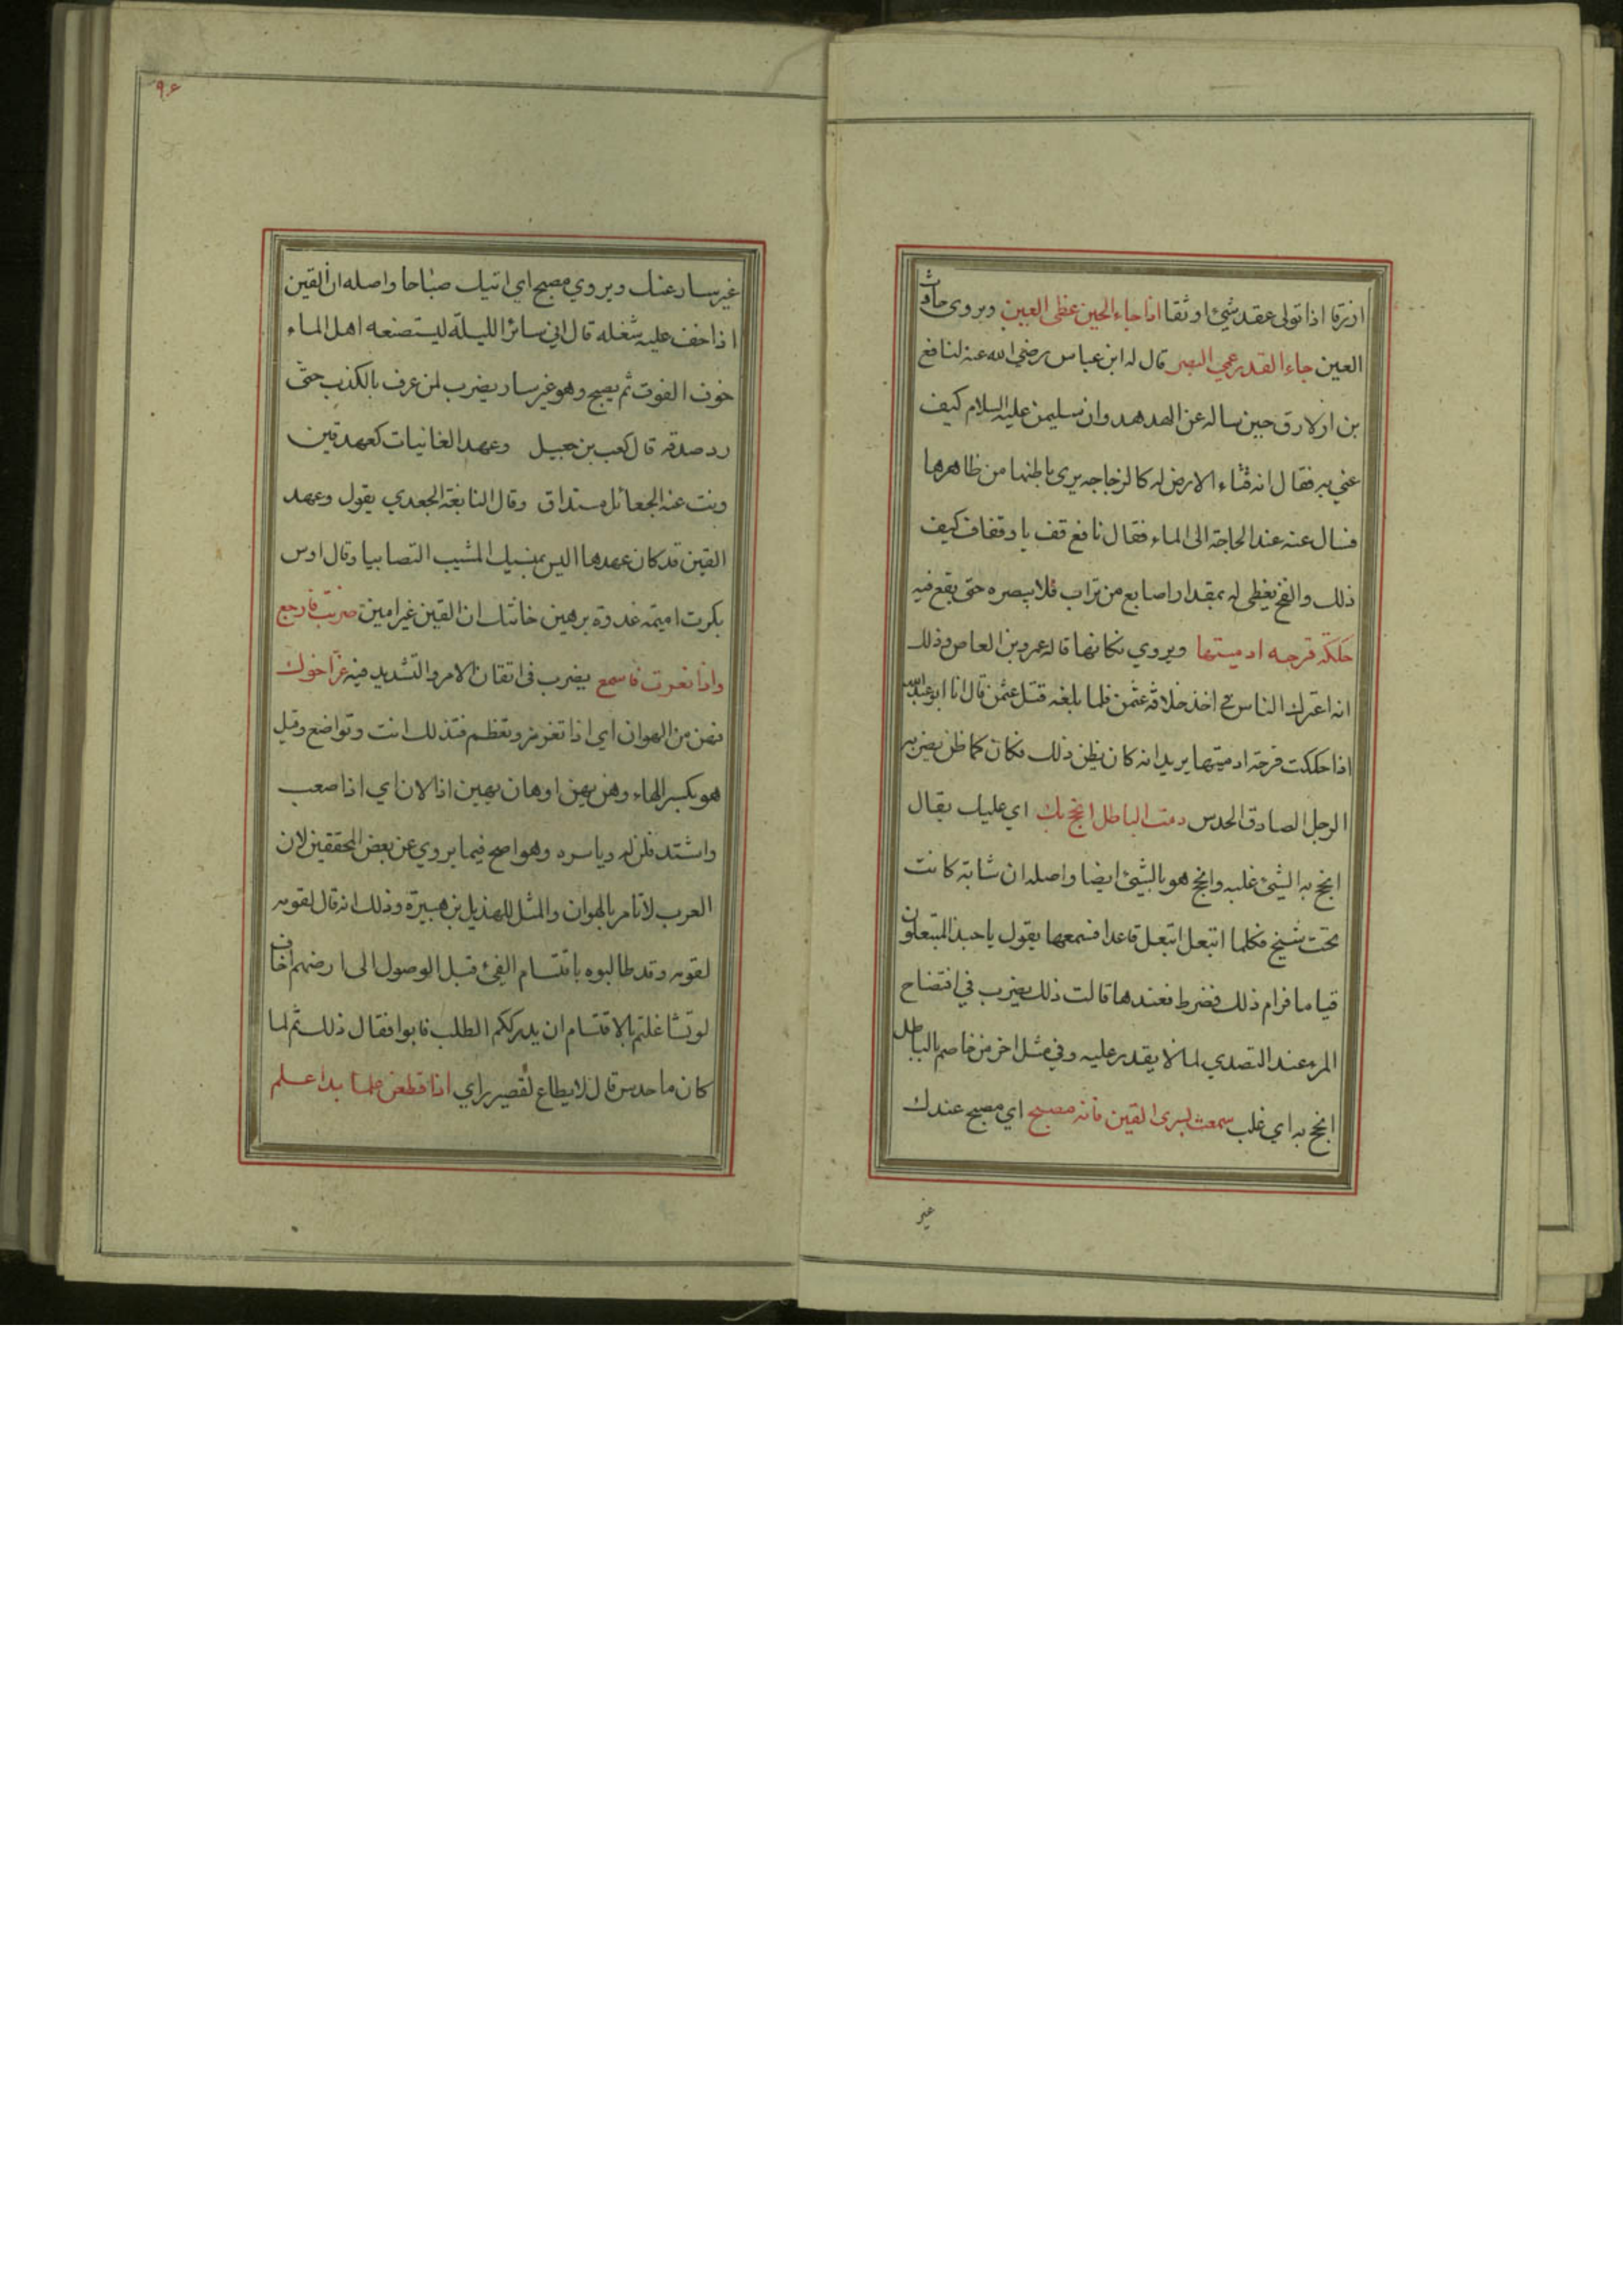 ازرقا اذا تولى عقد شيئ اوثقا اذا جاء الحين غطى العين ويروى حارت
العين جاء القدر عمي البصر قال له ابن عباس رضي الله عنه لنافع
بن الازرق حين ساله عن الهدهد وان سليمن عليه السلام كيف
عني به فقال انه قناء الارض له كالزجاجه يرى باطنها من ظاهرها
فسال عنه عند الحاجة الى الماء فقال نافع قف يا وقفاف كيف
ذلك والفخ يغطى له بمقدار اصابع من تراب فلا يبصره حتى يقع فيه
حككة قرحه ادميتها ويروي نكاتها قاله عمرو بن العاص وذلك
انه اعترل الناس في اخذ خلافة عثمن فلما بلغه قتل عثمن قال انا ابو عبدالله
اذا حككت قرحة ادميتها يريد انه كان يظن ذلك فكان كما ظن يضرب
الرجل الصادق الحدس رمت الباطل انجح بك اي عليك يقال
انجح به الشيئ غلبه وانجح هو بالشيئ ايضا واصله ان شابة كانت
تحت شيخ فكلما انتعل انتعل قاعدا فسمعها يقول يا حبذا المنتعلون
قياما فرام ذلك فضرط فعندها قالت ذلك يضرب في افتضاح
المرء عند التصدي لما لا يقدر عليه وفي مثل اخر من خاصم بالباطل
انجح به اي غلب سمعت بسرى القين فانه مصبح اي مصبح عندك
غير
٩٤
غير سار عنك ويروي مصبح اي اتيك صباحا واصله ان القين
اذا خف عليه شغله قال اني سائر الليلة ليستصنعه اهل الماء
خوف الفوت ثم يصبح وهو غير سار يضرب لمن عرف بالكذب حتى
رد صدقه قال كعب بن جعيل وعهد الغانيات كعهد قين
ونت عنه الجعائل مستذاق وقال النابغة الجعدي يقول وعهد
القين قد كان عهدها اليس بمنسيك المشيب التصابيا وقال اوس
بكرت اميتمة غدوة برهين خانتك ان القين غير امين ضربت فارجع
واذا نعرت فاسمع يضرب في اتقان الامر والتشديد فيه عز اخوك
فهن من الهوان اي اذا تعزز وتعظم فتذلل انت وتواضع وقيل
هو بكسر الهاء وهن يهن او هان يهين اذا لان اي اذا صعب
واشتد فلن له وياسره وهو اصح فيما يروي عن بعض المحققين لان
العرب لا تامر بالهوان والمثل للهذيل بن هبيرة وذلك انه قال لقومه
لقومه وقد طالبوه باقتسام الفئ قبل الوصول الى ارضهم اخاف
لو تشاغلتم بالاقتسام ان يدرككم الطلب فابوا فقال ذلك ثم لما
كان ما حدس قال لا يطاع لقصير راي اذا قطعن علما بدا علم